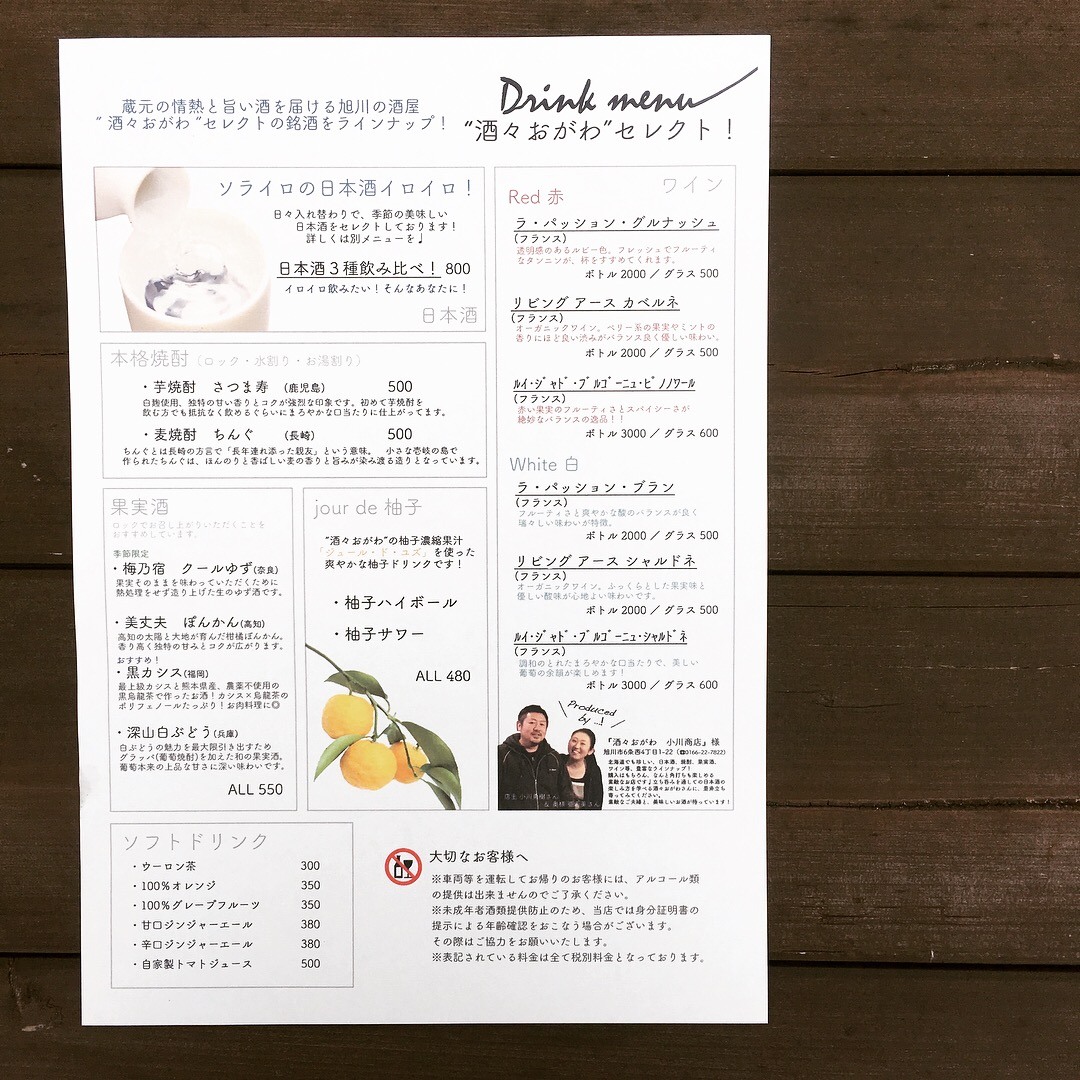 Drink menu
"酒々おがわ"セレクト！
蔵元の情熱と旨い酒を届ける旭川の酒屋
"酒々おがわ"セレクトの銘酒をラインナップ！
ソライロの日本酒イロイロ！
日々入れ替わりで、季節の美味しい
日本酒をセレクトしております！
詳しくは別メニューを♩
日本酒３種飲み比べ！ 800
イロイロ飲みたい！そんなあなたに！
日本酒
本格焼酎（ロック・水割り・お湯割り）
・芋焼酎　さつま寿　（鹿児島）　500
白麹使用、独特の甘い香りとコクが強烈な印象です。初めて芋焼酎を
飲む方でも抵抗なく飲めるぐらいにまろやかな口当たりに仕上がってます。
・麦焼酎　ちんぐ　（長崎）　500
ちんぐとは長崎の方言で「長年連れ添った親友」という意味。　小さな壱岐の島で
作られたちんぐは、ほんのりと香ばしい麦の香りと旨みが染み渡る造りとなっています。
果実酒
ロックでお召し上がりいただくことを
おすすめしています。
季節限定
・梅乃宿　クールゆず(奈良)
果実そのままを味わっていただくために
熱処理をせず造り上げた生のゆず酒です。
・美丈夫　ぽんかん(高知)
高知の太陽と大地が育んだ柑橘ぽんかん。
香り高く独特の甘みとコクが広がります。
おすすめ！
・黒カシス(福岡)
最上級カシスと熊本県産、農薬不使用の
黒烏龍茶で作ったお酒！カシス×烏龍茶の
ポリフェノールたっぷり！お肉料理に◎
・深山白ぶどう(兵庫)
白ぶどうの魅力を最大限引き出すため
グラッパ(葡萄焼酎)を加えた和の果実酒。
葡萄本来の上品な甘さに深い味わいです。
ALL 550
jour de 柚子
"酒々おがわ"の柚子濃縮果汁
「ジュール・ド・ユズ」を使った
爽やかな柚子ドリンクです！
・柚子ハイボール
・柚子サワー
ALL 480
ワイン
Red 赤
ラ・パッション・グルナッシュ
(フランス)
透明感のあるルビー色。フレッシュでフルーティ
なタンニンが、杯をすすめてくれます。
ボトル 2000 ／ グラス 500
リビング アース カベルネ
(フランス)
オーガニックワイン。ベリー系の果実やミントの
香りにほど良い渋みがバランス良く優しい味わい。
ボトル 2000 ／ グラス 500
ﾙｲ･ｼﾞｬﾄﾞ･ﾌﾞﾙｺﾞｰﾆｭ･ﾋﾟﾉﾉﾜｰﾙ
(フランス)
赤い果実のフルーティさとスパイシーさが
絶妙なバランスの逸品！！
ボトル 3000 ／ グラス 600
White 白
ラ・パッション・ブラン
(フランス)
フルーティさと爽やかな酸のバランスが良く
瑞々しい味わいが特徴。
ボトル 2000 ／ グラス 500
リビング アース シャルドネ
(フランス)
オーガニックワイン。ふっくらとした果実味と
優しい酸味が心地よい味わいです。
ボトル 2000 ／ グラス 500
ﾙｲ･ｼﾞｬﾄﾞ･ﾌﾞﾙｺﾞｰﾆｭ･ｼｬﾙﾄﾞﾈ
(フランス)
調和のとれたまろやかな口当たりで、美しい
葡萄の余韻が楽しめます！
ボトル 3000 ／ グラス 600
Produced
by ...!
『酒々おがわ　小川商店』様
旭川市6条西4丁目1-22（☎0166-22-7822）
北海道でも珍しい、日本酒、焼酎、果実酒、
ワイン等、豊富なラインナップ！
購入はもちろん、なんと角打ちも楽しめる
素敵なお店です♩立ち呑みを通しての日本酒の
楽しみ方を学べる酒々おがわさんに、是非立ち
寄ってみてください。
素敵なご夫婦と、美味しいお酒が待っています！
店主 小川 樹さん
& 奥様 さん
ソフトドリンク
・ウーロン茶　300
・100％オレンジ　350
・100％グレープフルーツ　350
・甘口ジンジャーエール　380
・辛口ジンジャーエール　380
・自家製トマトジュース　500
大切なお客様へ
※車両等を運転してお帰りのお客様には、アルコール類
の提供は出来ませんのでご了承ください。
※未成年者酒類提供防止のため、当店では身分証明書の
提示による年齢確認をおこなう場合がございます。
その際はご協力をお願いいたします。
※表記されている料金は全て税別料金となっております。